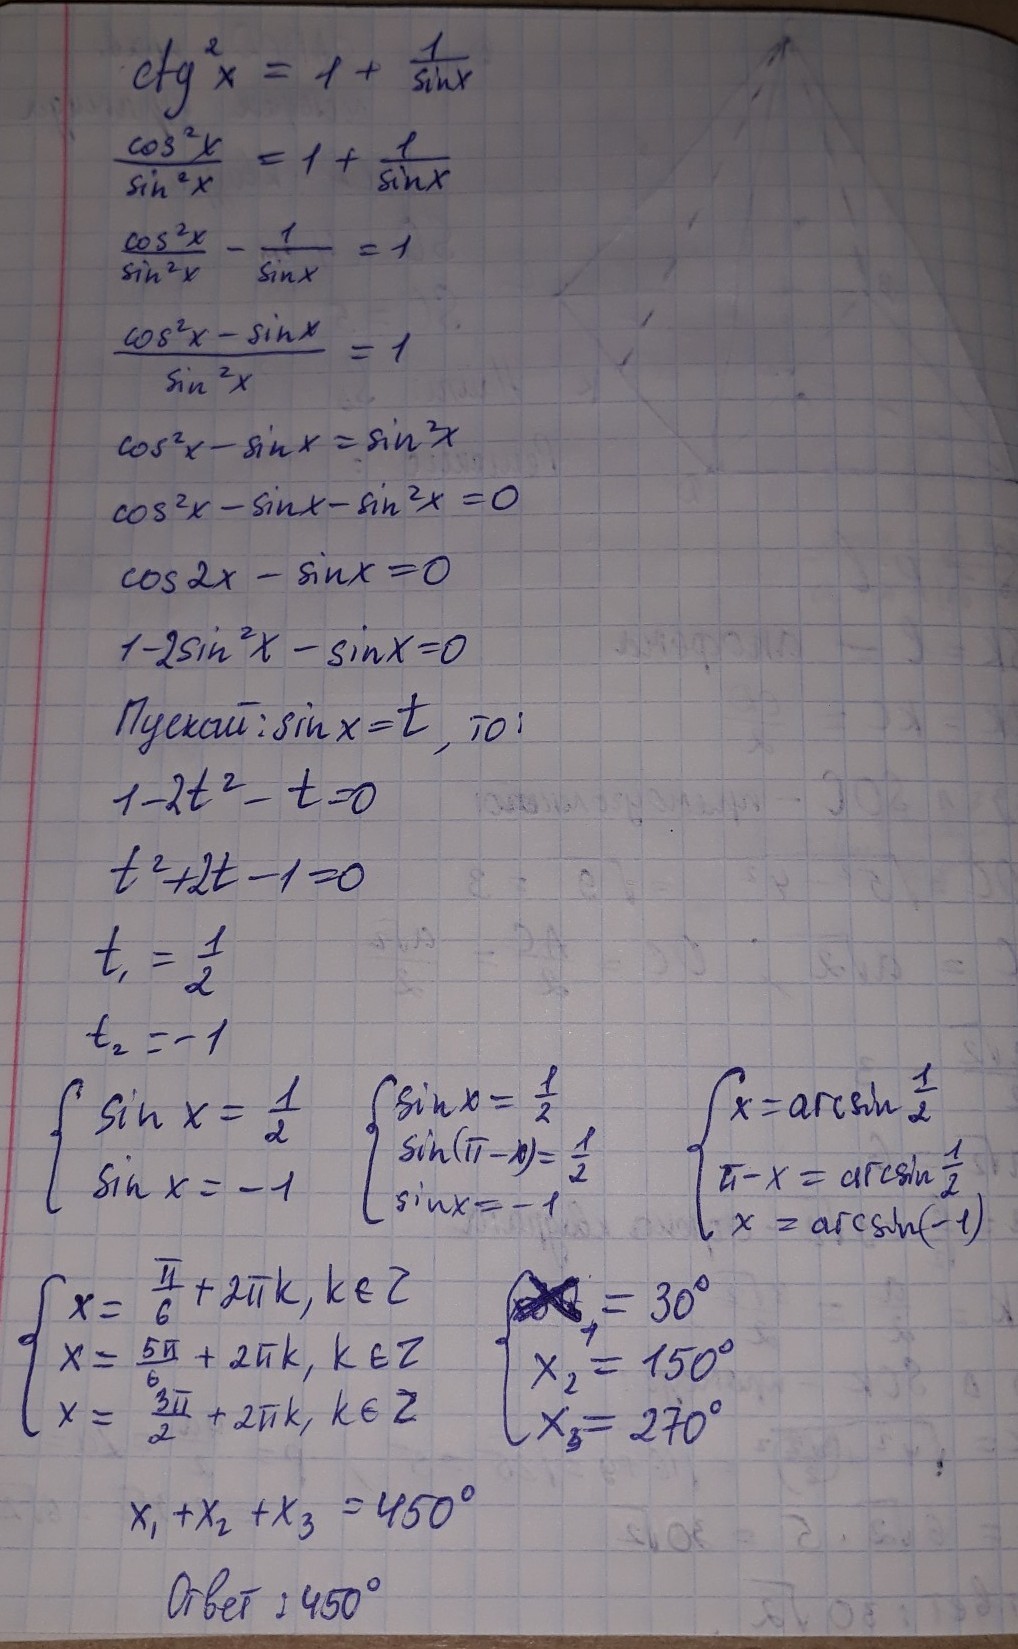 ctg²x = 1 + 1/sinx
cos²x/sin²x = 1 + 1/sinx
cos²x/sin²x - 1/sinx = 1
(cos²x - sinx)/sin²x = 1
cos²x - sinx = sin²x
cos²x - sinx - sin²x = 0
cos2x - sinx = 0
1 - 2sin²x - sinx = 0
Пускай: sinx = t, то:
1 - 2t² - t = 0
t² + 2t - 1 = 0
t₁ = 1/2
t₂ = -1
{ sin x = 1/2
sin x = -1
{ sinx = 1/2
sin(π-x) = 1/2
sinx = -1
{ x = arcsin 1/2
π - x = arcsin 1/2
x = arcsin(-1)
{ x = π/6 + 2πk, k ∈ Z
x = 5π/6 + 2πk, k ∈ Z
x = 3π/2 + 2πk, k ∈ Z
{ ₁ = 30°
x₂ = 150°
x₃ = 270°
x₁ + x₂ + x₃ = 450°
Ответ: 450°